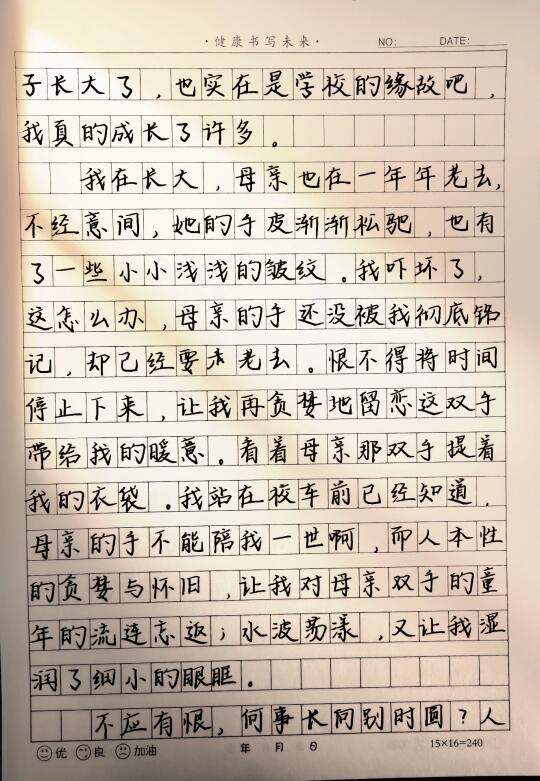 ·健康书写未来·
NO: DATE:
子长大了，也实在是学校的缘故吧，
我真的成长了许多。
我在长大，母亲也在一年年老去，
不经意间，她的手皮渐渐松驰，也有
了一些小小浅浅的皱纹。我吓坏了，
这怎么办，母亲的手还没被我彻底铭
记，却已经要未老去。恨不得将时间
停止下来，让我再贪婪地留恋这双手
带给我的暖意。看着母亲那双手提着
我的衣袋。我站在校车前已经知道，
母亲的手不能陪我一世啊，而人本性
的贪婪与怀旧，让我对母亲双手的童
年的流连忘返；水波荡漾，又让我湿
润了细小的眼眶。
不应有恨，何事长向别时圆？人
优 良 加油 年 月 日 15×16=240